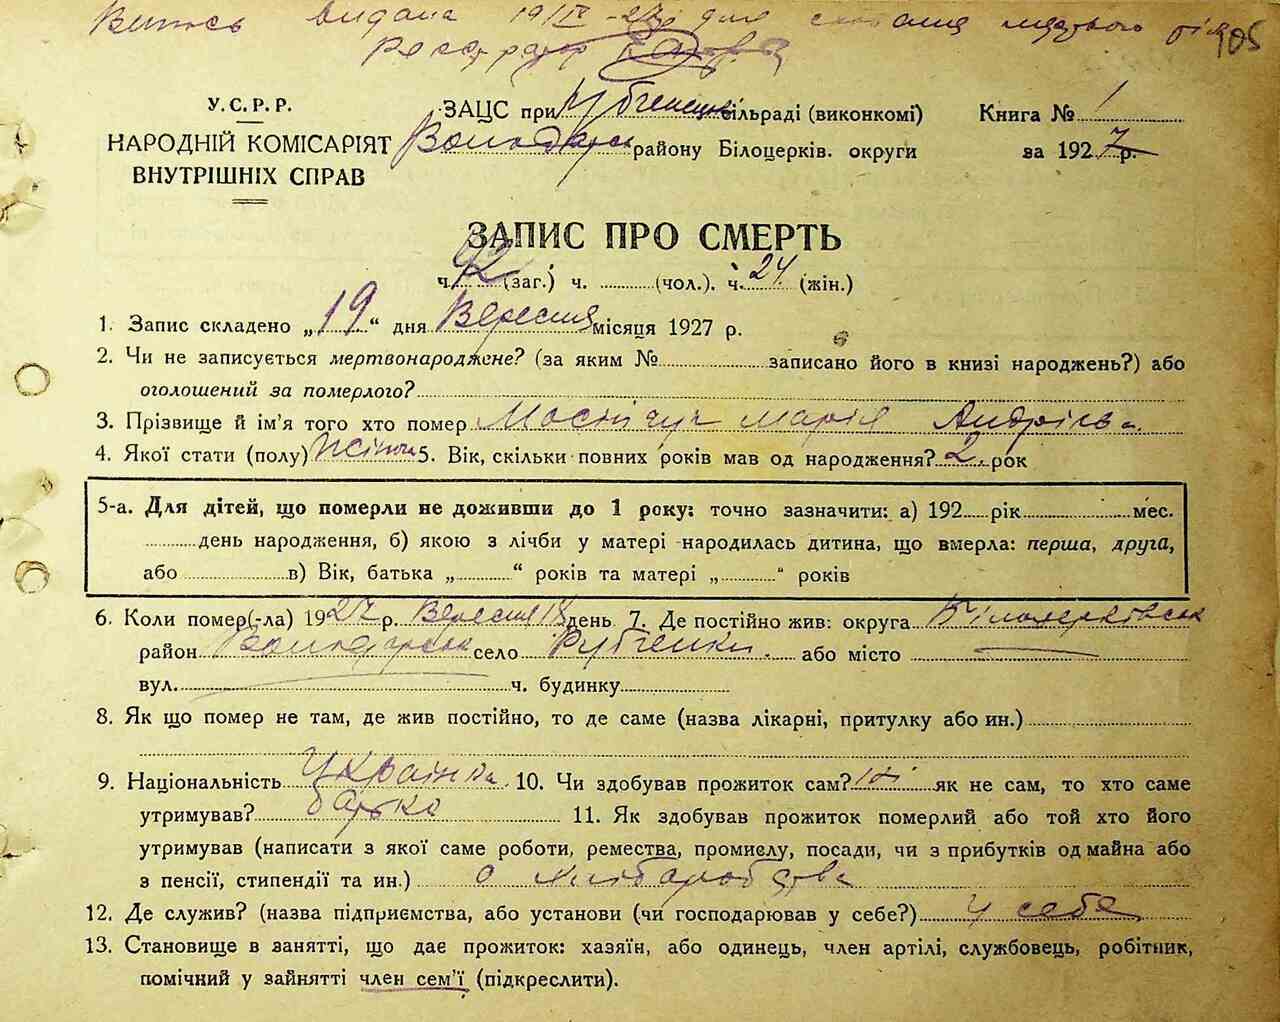 Витяг видана 19/IV-27р для сховання мертвого тіла 105
Реєстратор
У.С.Р.Р.
НАРОДНІЙ КОМІСАРІЯТ
ВНУТРІШНІХ СПРАВ
ЗАЦС при Рубченецьк. сільраді (виконкомі)
Володарськ району Білоцерків. округи
Книга № 1
за 1927 р.
ЗАПИС ПРО СМЕРТЬ
ч. 42 (заг.) ч. ............(чол.). ч. 24 (жін.)
1. Запис складено „19“ дня Вересня місяця 1927 р.
2. Чи не записується мертвонароджене? (за яким №............записано його в книзі народжень?) або
оголошений за померлого?
3. Прізвище й ім'я того хто помер Марія Андріївна
4. Якої стати (полу) Жіноч 5. Вік, скільки повних років мав од народження? 2 рок
5-а. Для дітей, що померли не доживши до 1 року: точно зазначити: а) 192.....рік..................мес.
..........день народження, б) якою з лічби у матері народилась дитина, що вмерла: перша, друга,
або ..................в) Вік, батька „............“ років та матері „............“ років
6. Коли помер(-ла) 1927 р. Вересня 18 день 7. Де постійно жив: округа Білоцерківськ
район Володарськ село Рубченки або місто
вул. ч. будинку
8. Як що помер не там, де жив постійно, то де саме (назва лікарні, притулку або ин.)
9. Національність Українка 10. Чи здобував прожиток сам? ні як не сам, то хто саме
утримував? батько 11. Як здобував прожиток померлий або той хто його
утримував (написати з якої саме роботи, ремества, промислу, посади, чи з прибутків од майна або
з пенсії, стипендії та ин.) з хліборобства
12. Де служив? (назва підприємства, або установи (чи господарював у себе?) у себе
13. Становище в занятті, що дає прожиток: хазяїн, або одинець, член артілі, службовець, робітник,
помічний у зайнятті член сем'ї (підкреслити).